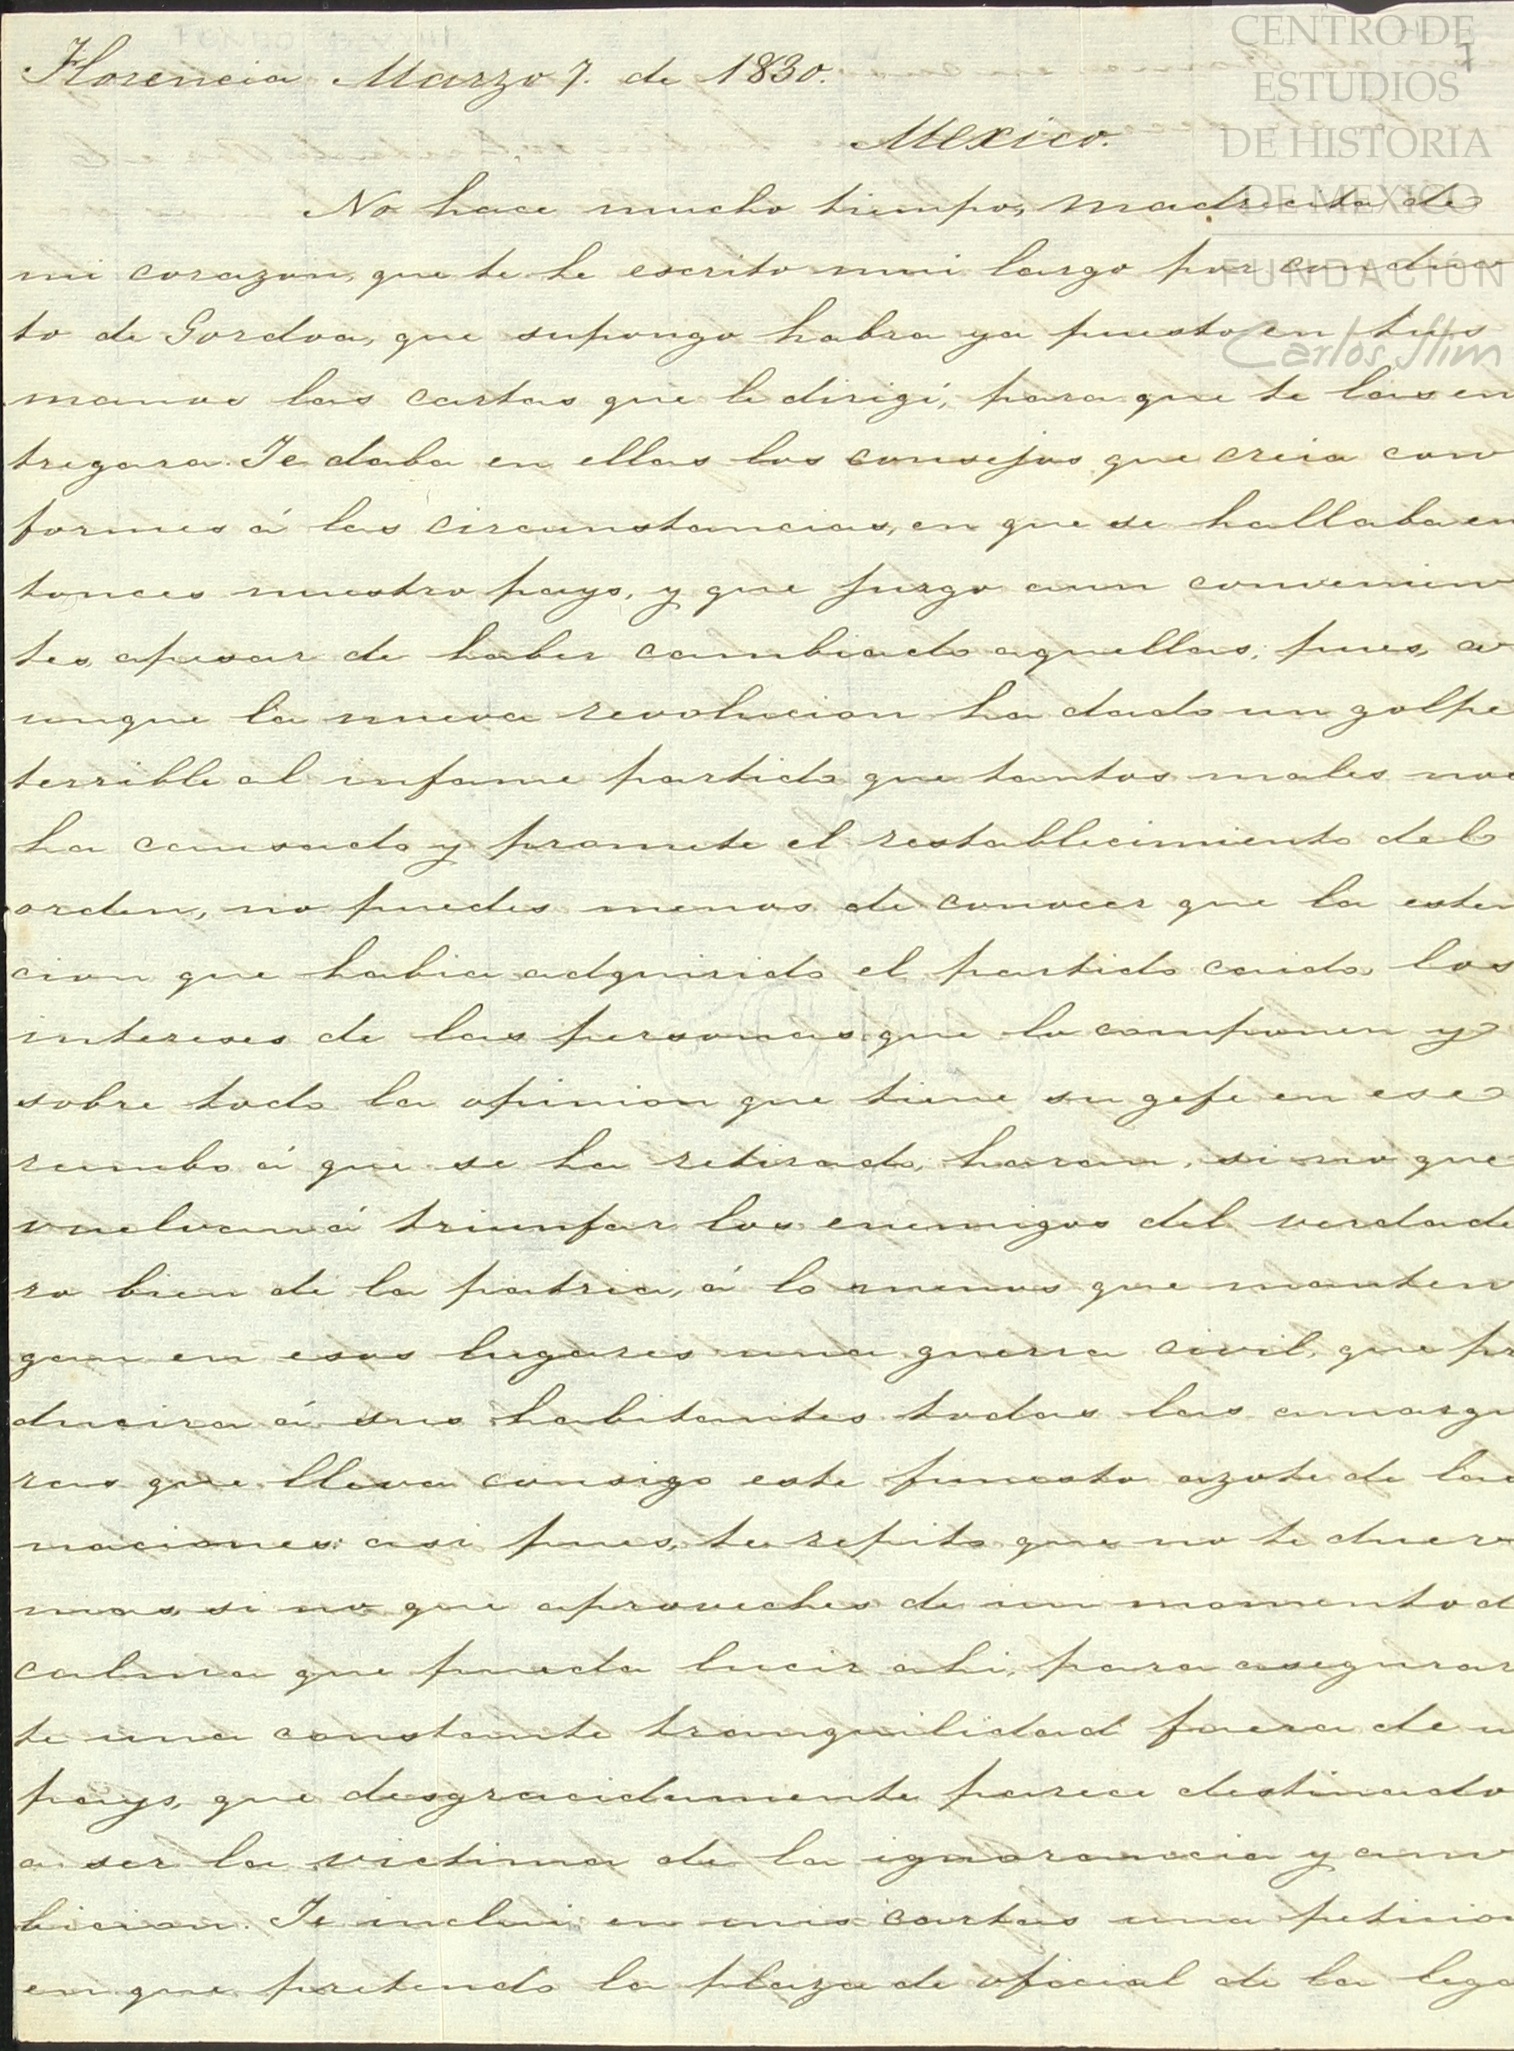 CENTRO DE
ESTUDIOS
DE HISTORIA
DE MEXICO
FUNDACIÓN
Carlos Slim
7
Florencia Marzo 7. de 1830.
Mexico.
No hace mucho tiempo, madrecita de
mi corazon, que te he escrito mui largo por conduc
to de Gordoa, que supongo habra ya puesto en tus
manos las cartas que le dirigí, para que te las en
tregara. Te daba en ellas los consejos que creia con
formes á las circunstancias, en que se hallaba en
tonces nuestro pays, y que juzgo aun convenien
tes, apesar de haber cambiado aquellas; pues, a
unque la nueva revolucion ha dado un golpe
terrible al infame partido que tantos males nos
ha causado y promete el restablecimiento del
orden, no puedes menos de conocer que la esten
cion que habia adquirido el partido caido, los
intereses de las personas que lo componen y
sobre todo la opinion que tiene su gefe en ese
rumbo á que se ha retirado, haran, si no que
vuelvan á triunfar los enemigos del verdade
ro bien de la patria, á lo menos que manten
gan en esos lugares una guerra civil, que pr
ducira á sus habitantes todas las amargu
ras que lleva consigo este funesto azote de las
naciones: asi pues, te repito que no te duer
mas, si no que aproveches de un momento d
calma que pueda lucir ahi, para asegurar
te una constante tranquilidad fuera de u
pays, que desgracidamente parece destinado
a ser la victima de la ignorancia y am
bicion. Te inclui en mis cartas una peticion
en que pretendo la plaza de oficial de la lega